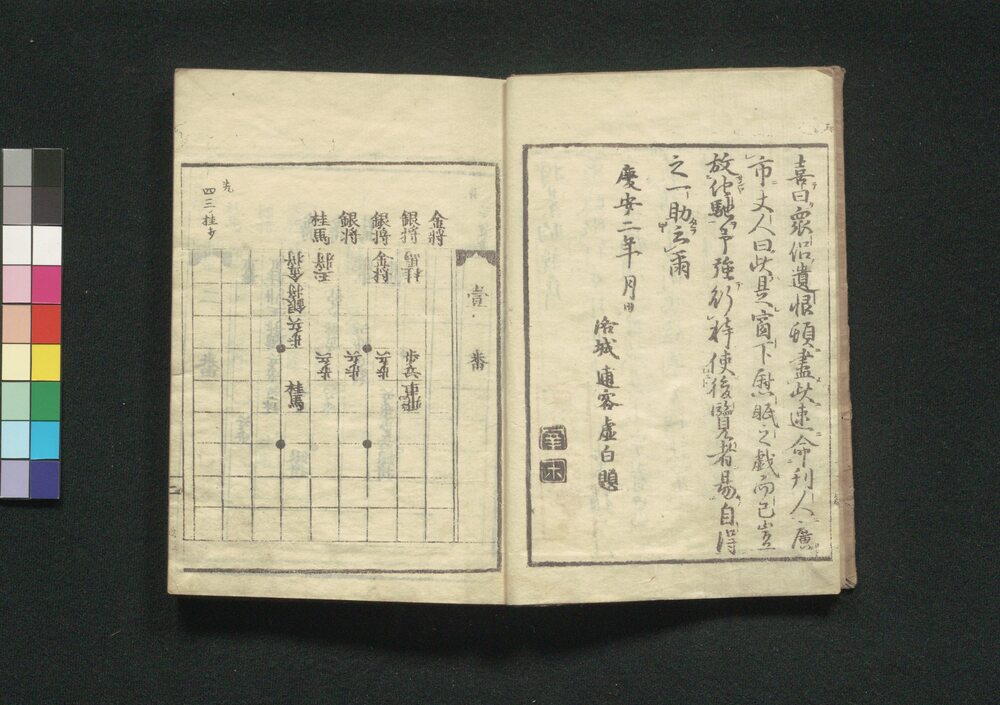 喜曰衆侶遺恨頓盡此速命刊人廣
市丈人曰此是窗下慰眠之戯而已豈
放他馳予強行梓使後覽者易自得
之一助云爾
慶安二年 月日
洛城逋客虚白題
壹番
金将
銀将
銀将
銀将
桂馬
金将
王将
金将
銀将
歩兵
歩兵
歩兵
歩兵
歩兵
飛車
桂馬
四三桂歩